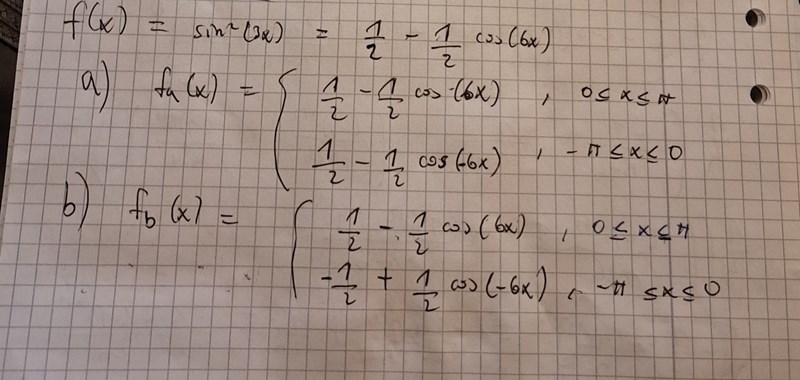 f(x) = sin²(3x) = 1/2 - 1/2 cos(6x)
a) fa(x) = { 1/2 - 1/2 cos(6x) , 0 ≤ x ≤ π
1/2 - 1/2 cos(-6x) , -π ≤ x ≤ 0
b) fb(x) = { 1/2 - 1/2 cos(6x) , 0 ≤ x ≤ π
-1/2 + 1/2 cos(-6x) , -π ≤ x ≤ 0